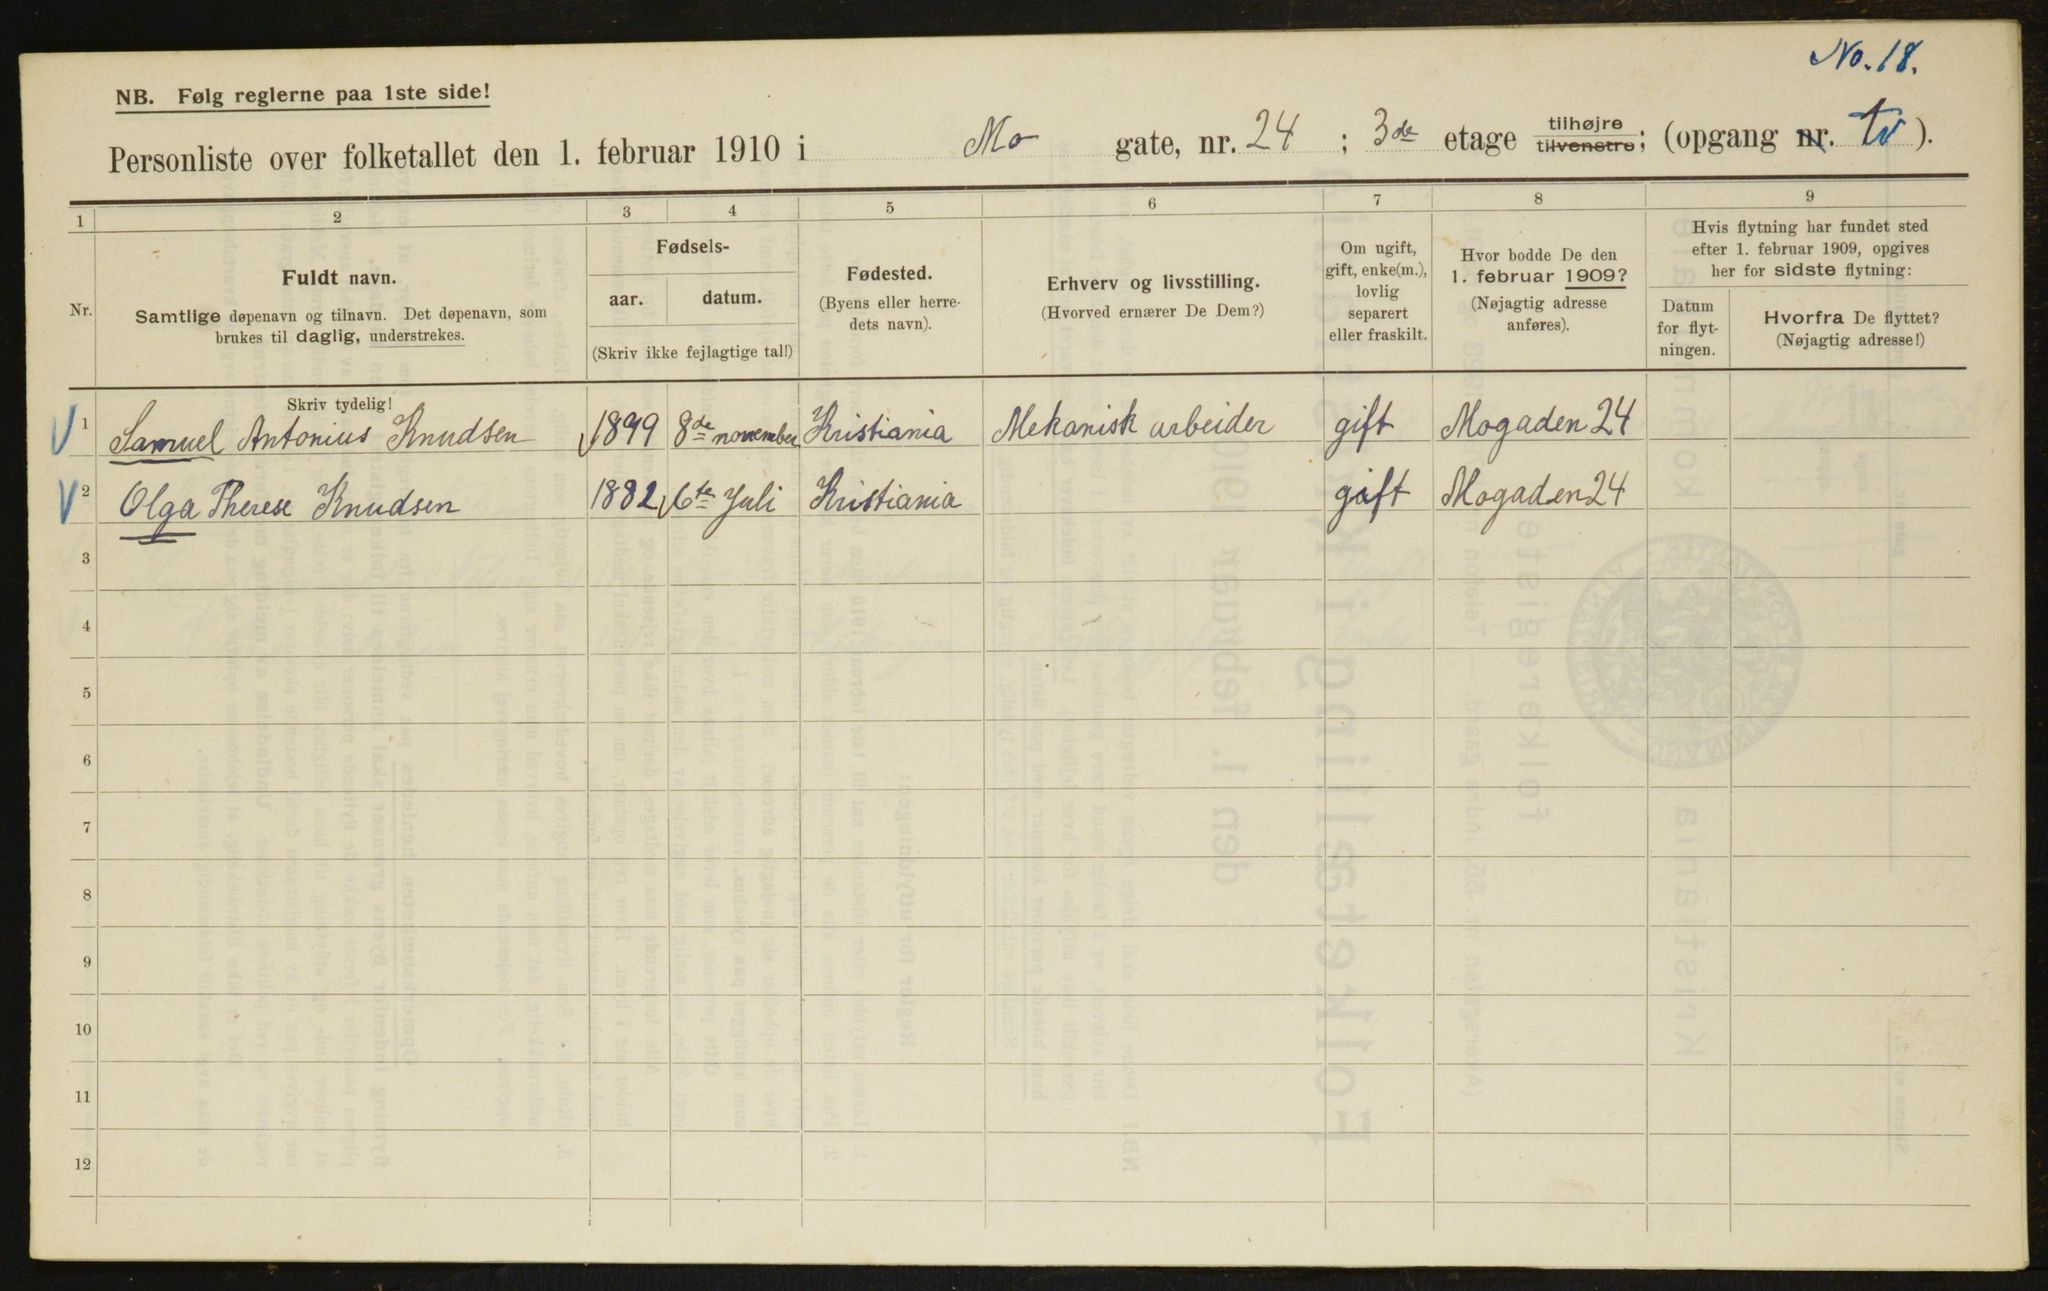 No. 18.
NB. Følg reglerne paa 1ste side!
Personliste over folketallet den 1. februar 1910 i Mo gate, nr. 24 ; 3de etage tilhøjre tilvenstre; (opgang nr. tv ).
1 2 3 4 5 6 7 8 9
Nr.
Fuldt navn.
Samtlige døpenavn og tilnavn. Det døpenavn, som
brukes til daglig, understrekes.
Fødsels-
aar. datum.
(Skriv ikke fejlagtige tal!)
Fødested.
(Byens eller herre-
dets navn).
Erhverv og livsstilling.
(Hvorved ernærer De Dem?)
Om ugift,
gift, enke(m.),
lovlig
separert
eller fraskilt.
Hvor bodde De den
1. februar 1909?
(Nøjagtig adresse
anføres).
Hvis flytning har fundet sted
efter 1. februar 1909, opgives
her for sidste flytning:
Datum
for flyt-
ningen.
Hvorfra De flyttet?
(Nøjagtig adresse!)
Skriv tydelig!
1 Samuel Antonius Knudsen 1899 8de november Kristiania Mekanisk arbeider gift Mogaden 24
2 Olga Therese Knudsen 1882 6te Juli Kristiania gift Mogaden 24
3
4
5
6
7
8
9
10
11
12